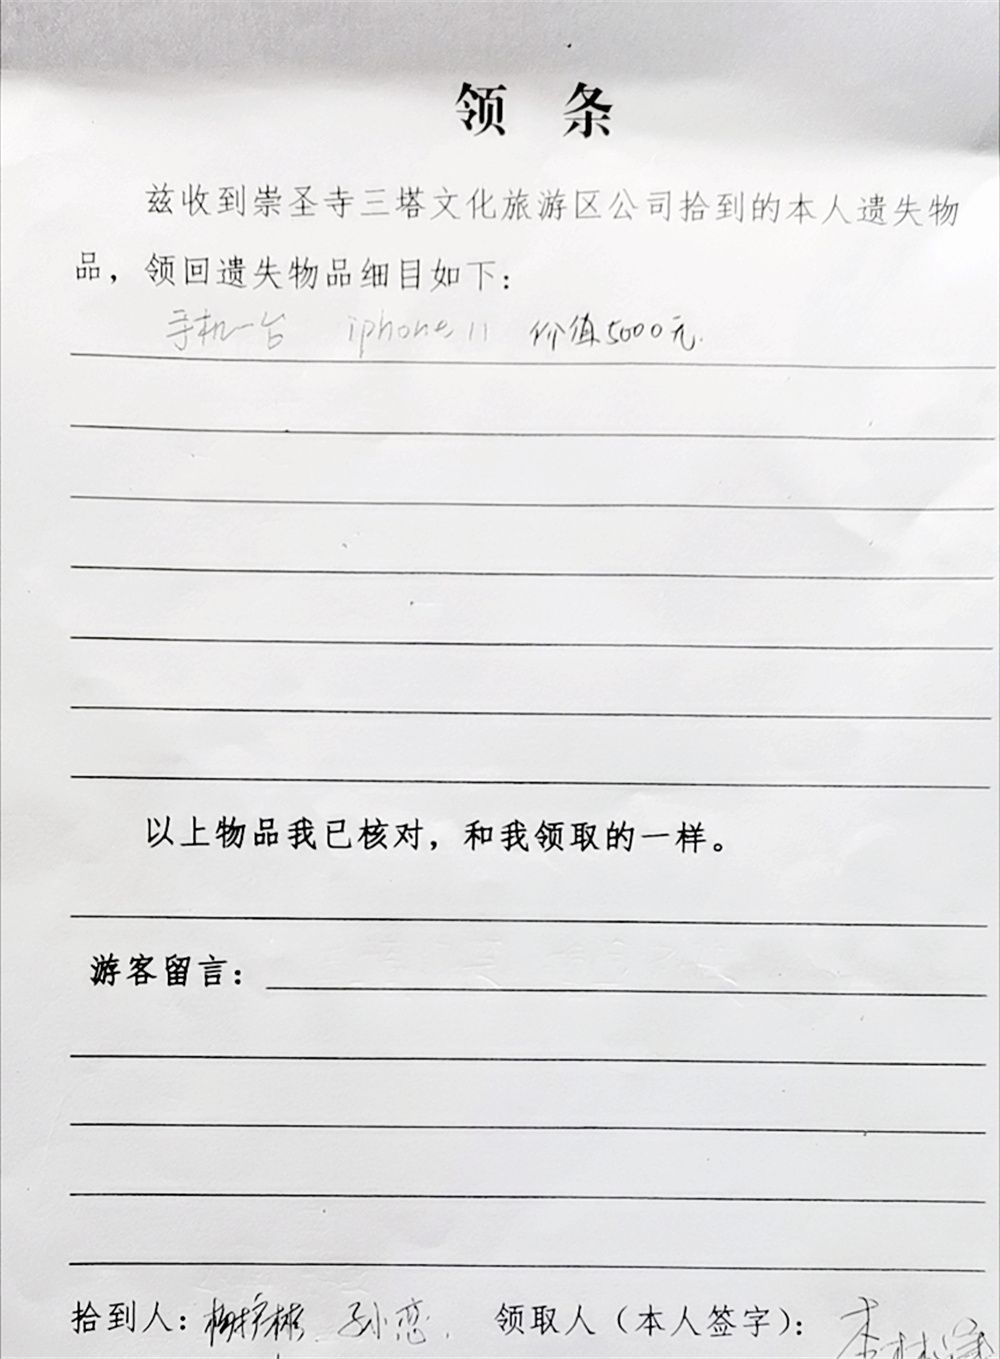 领 条
兹收到崇圣寺三塔文化旅游区公司拾到的本人遗失物
品，领回遗失物品细目如下：
手机一台 iphone 11 价值5000元.
以上物品我已核对，和我领取的一样。
游客留言：
拾到人： 孙恋. 领取人（本人签字）：